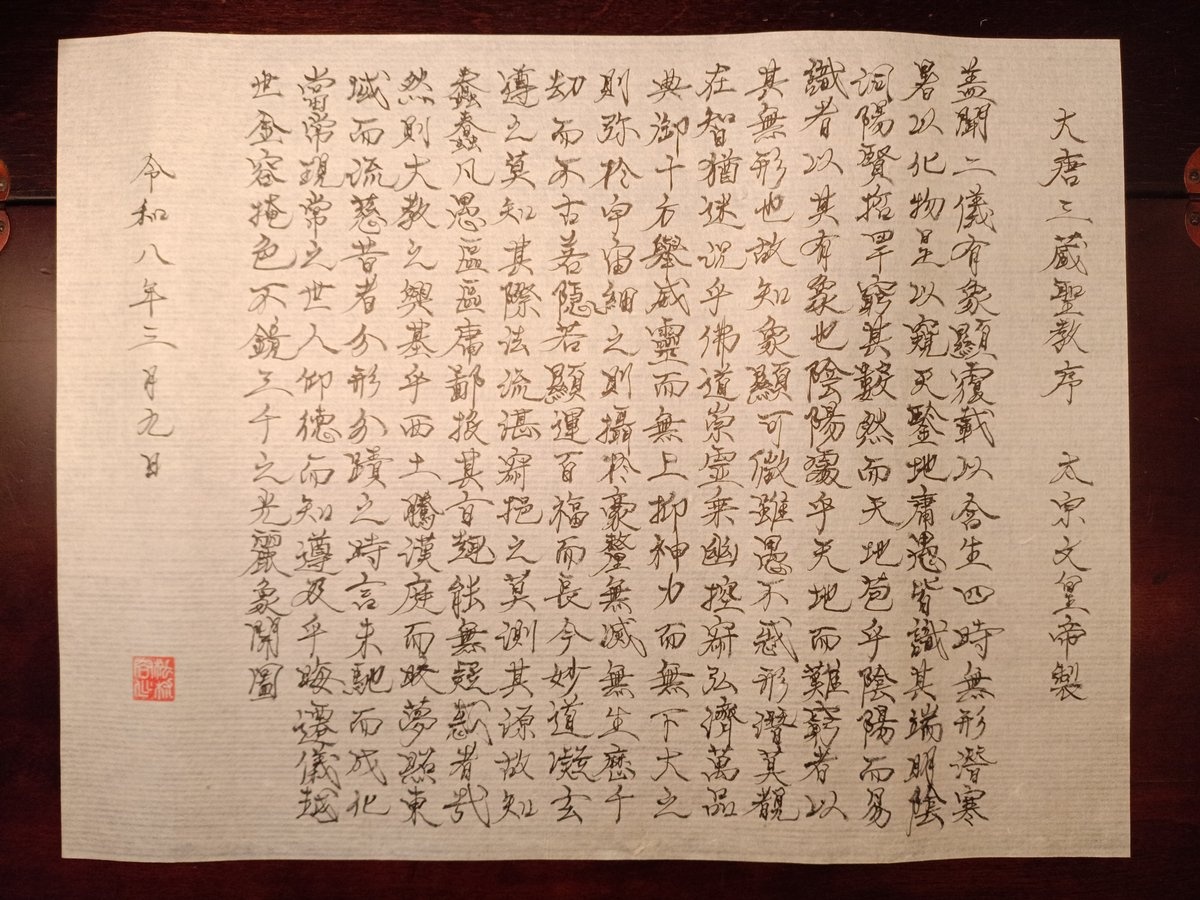 大唐三蔵聖教序 太宗文皇帝製
盖聞二儀有象顯覆載以含生四時無形潛寒
暑以化物是以窺天鑒地庸愚皆識其端明陰
洞陽賢哲罕窮其數然而天地苞乎陰陽而易
識者以其有象也陰陽處乎天地而難窮者以
其無形也故知象顯可徵雖愚不惑形潛莫覩
在智猶迷況乎佛道崇虛乗幽控寂弘濟萬品
典御十方舉威靈而無上抑神力而無下大之
則弥於宇宙細之則攝於豪釐無滅無生歷千
劫而不古若隱若顯運百福而長今妙道凝玄
遵之莫知其際法流湛寂挹之莫測其源故知
蠢蠢凡愚區區庸鄙投其旨趣能無疑惑者哉
然則大教之興基乎西土騰漢庭而皎夢照東
域而流慈昔者分形分蹟之時言未馳而成化
當常現常之世人仰德而知遵及乎晦 遷儀越
世金容掩色不鏡三千之光麗象開圖
令和八年三月九日